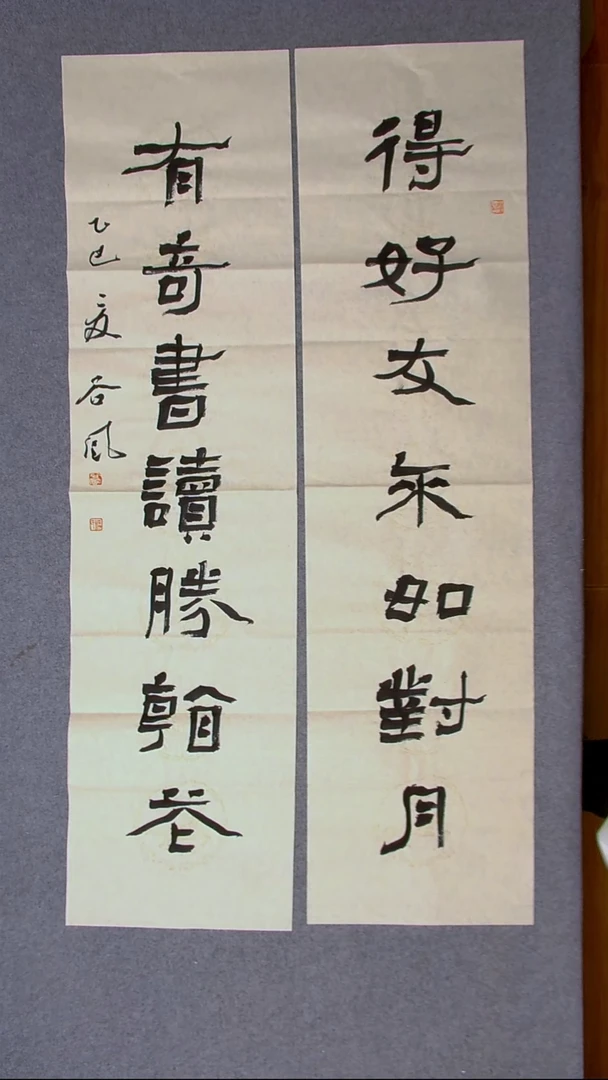 得好友來如對月
有奇書讀勝看花
乙巳夏谷風